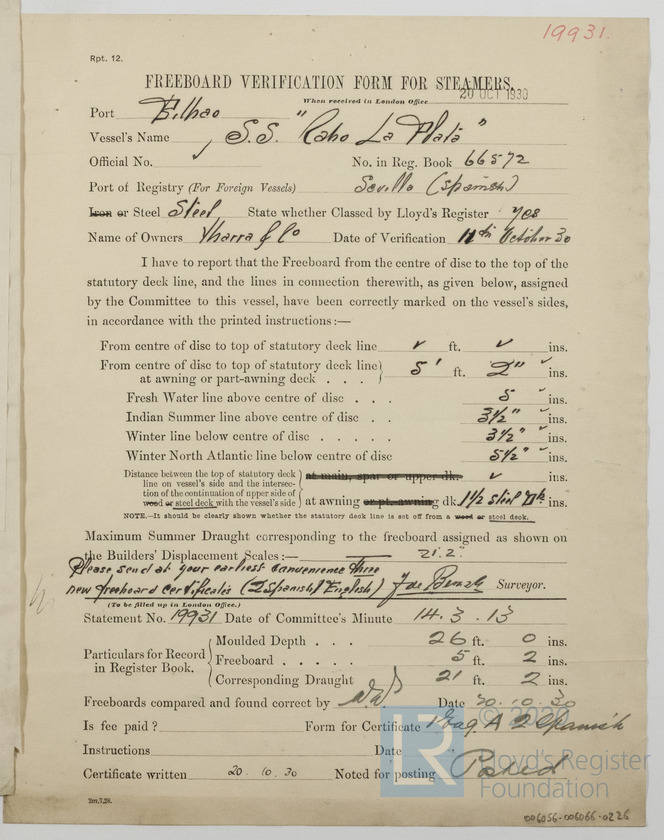 19931.
Rpt. 12.
FREEBOARD VERIFICATION FORM FOR STEAMERS.
When received in London Office 20 OCT 1930
Port Bilbao
Vessel's Name S.S. "Cabo La Plata"
Official No. ✓ No. in Reg. Book 66572
Port of Registry (For Foreign Vessels) Sevilla (Spanish)
Iron or Steel Steel State whether Classed by Lloyd's Register yes
Name of Owners Ybarra & Co Date of Verification 11th October 30
I have to report that the Freeboard from the centre of disc to the top of the
statutory deck line, and the lines in connection therewith, as given below, assigned
by the Committee to this vessel, have been correctly marked on the vessel's sides,
in accordance with the printed instructions :—
From centre of disc to top of statutory deck line ✓ ft. ✓ ins.
From centre of disc to top of statutory deck line
at awning or part-awning deck . . . 5' ft. 2" ins.
Fresh Water line above centre of disc . . . 5 ins.
Indian Summer line above centre of disc . . 3½" ins.
Winter line below centre of disc . . . . . 3½" ins.
Winter North Atlantic line below centre of disc 5½" ins.
Distance between the top of statutory deck
line on vessel's side and the intersec-
tion of the continuation of upper side of
wood or steel deck with the vessel's side
at main, spar or upper dk. ✓ ins.
at awning or pt. awning dk. 1½ Steel Dk ins.
NOTE.—It should be clearly shown whether the statutory deck line is set off from a wood or steel deck.
Maximum Summer Draught corresponding to the freeboard assigned as shown on
the Builders' Displacement Scales :— 21'.2"
Please send at your earliest convenience three
new freeboard certificates (2 Spanish 1 English) Surveyor.
(To be filled up in London Office.)
Statement No. 19931 Date of Committee's Minute 14.3.13
Particulars for Record
in Register Book.
Moulded Depth . . . 26 ft. 0 ins.
Freeboard . . . . . 5 ft. 2 ins.
Corresponding Draught 21 ft. 2 ins.
Freeboards compared and found correct by Date 20.10.30
Is fee paid ? Form for Certificate 1 Eng. A 2 Spanish
Instructions Date
Certificate written 20.10.30 Noted for posting Posted
2m,7,28.
© 2020
LR
Lloyd's Register
Foundation
006056-006066-0226